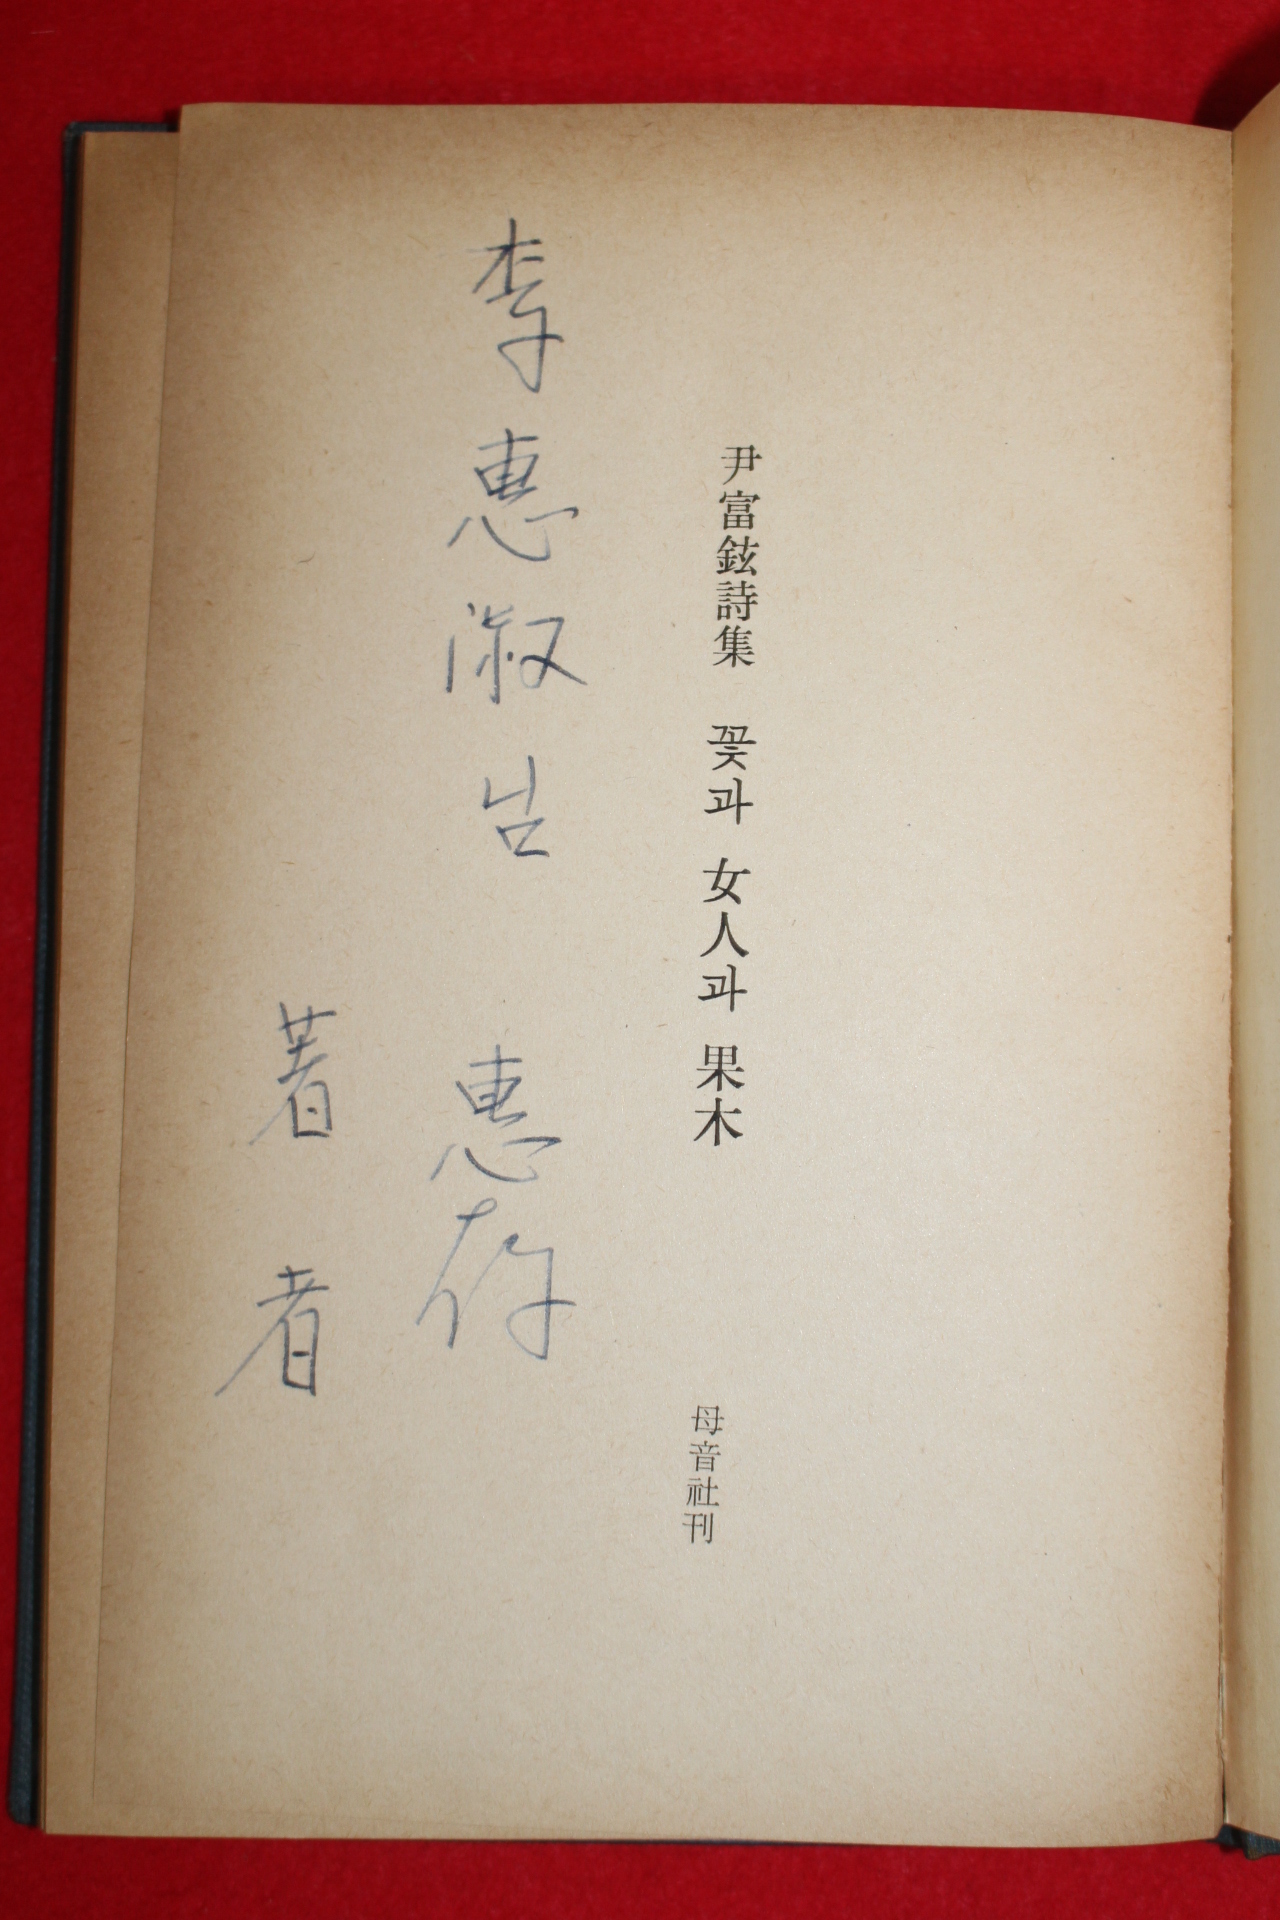 尹富鉉詩集 꽃과 女人과 果木 母音社刊
李惠淑님 惠存
著者